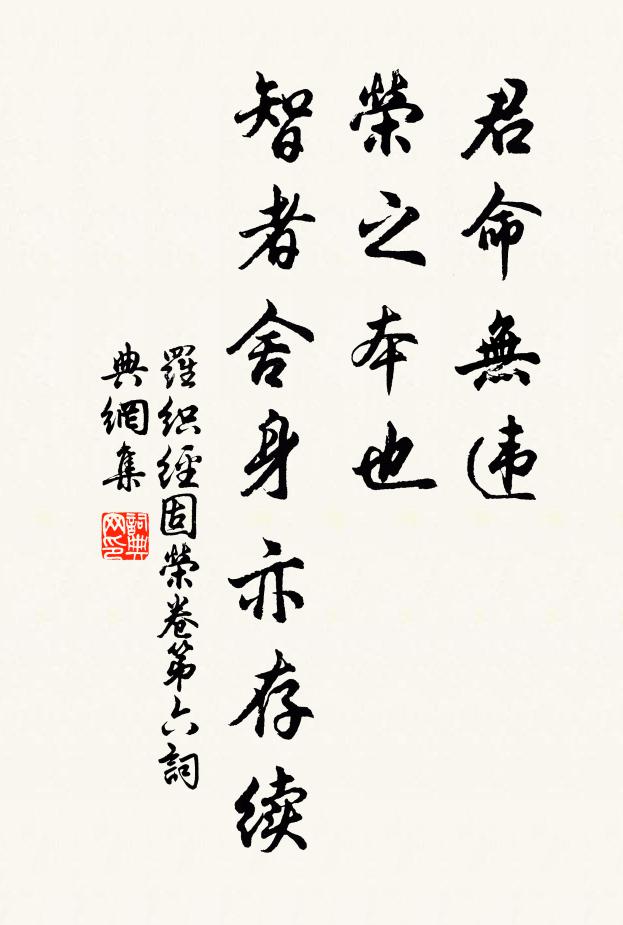 君命無违
榮之本也
智者舍身亦存续
羅织經固榮卷第六詞
典網集
詞典
网印